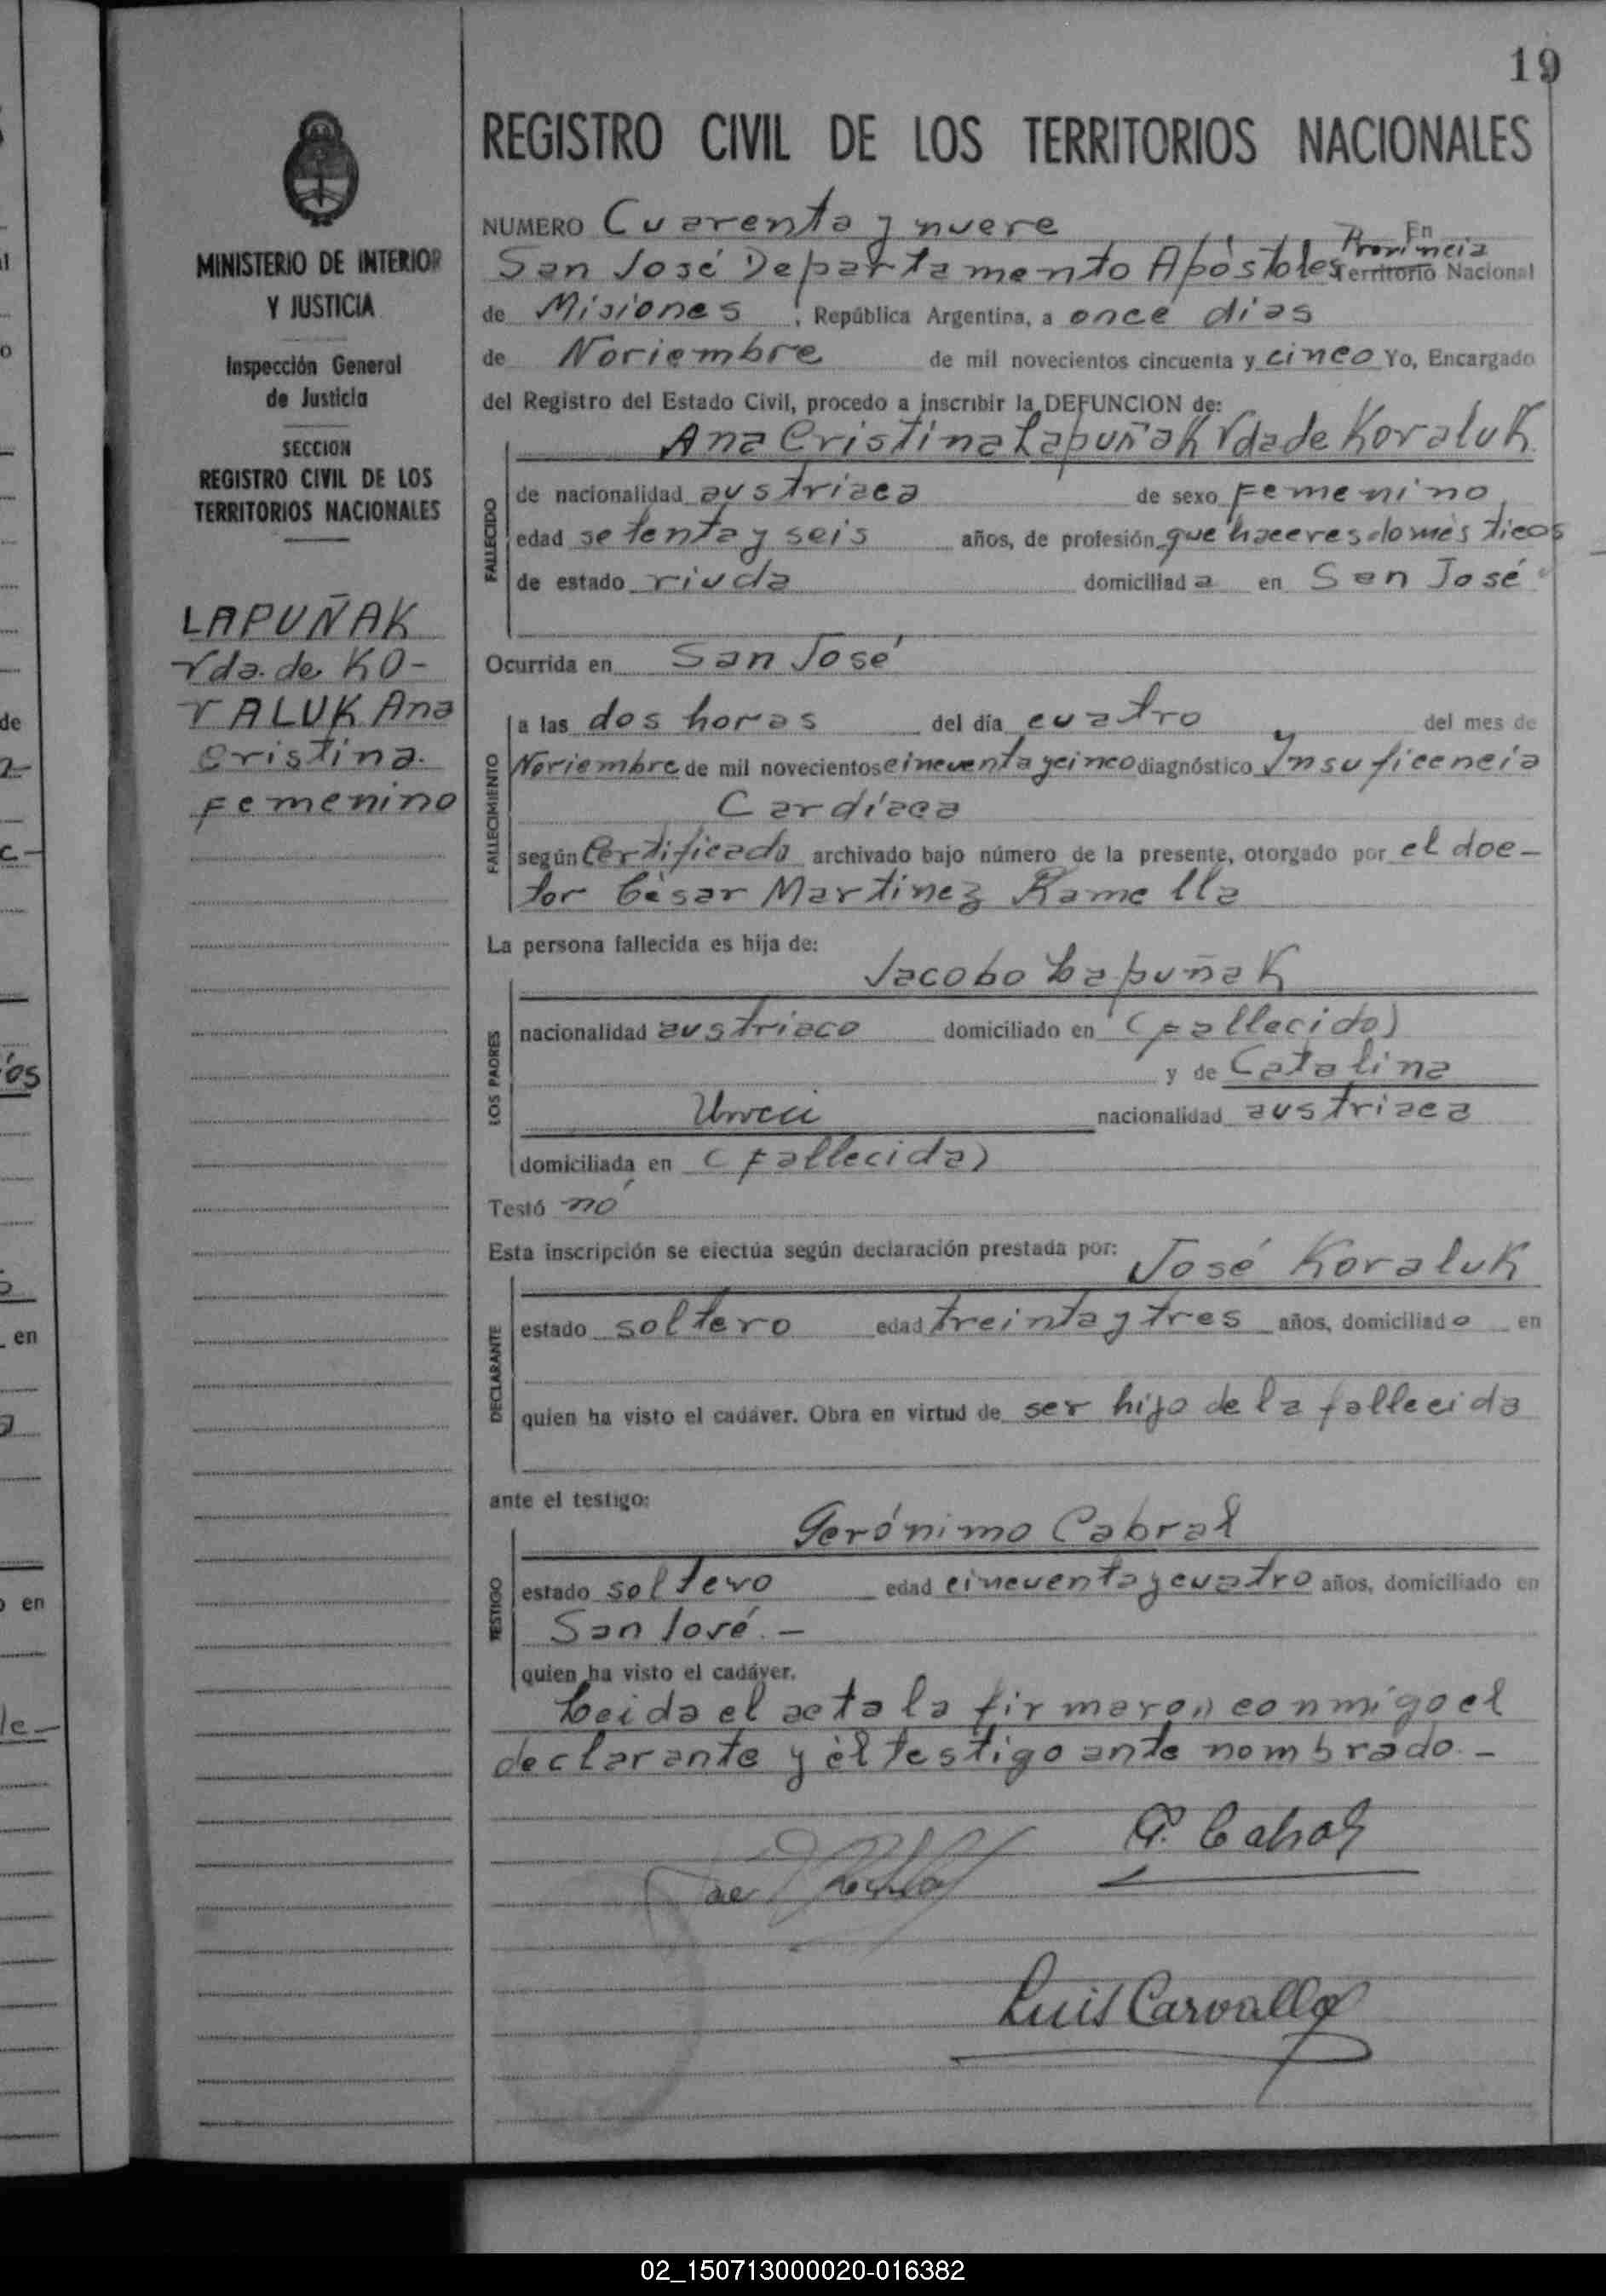 19
REGISTRO CIVIL DE LOS TERRITORIOS NACIONALES
MINISTERIO DE INTERIOR
Y JUSTICIA
Inspección General
de Justicia
SECCION
REGISTRO CIVIL DE LOS
TERRITORIOS NACIONALES
LAPUÑAK
Vda. de KO-
VALUK Ana
Cristina.
Femenino
NUMERO Cuarenta y nueve En
Provincia
San José Departamento Apóstoles Territorio Nacional
de Misiones, República Argentina, a once días
de Noviembre de mil novecientos cincuenta y cinco Yo, Encargado
del Registro del Estado Civil, procedo a inscribir la DEFUNCION de:
Ana Cristina Lapuñak Vda de Kovaluk
FALLECIDO
de nacionalidad austriaca de sexo Femenino
edad setenta y seis años, de profesión que haceres domésticos
de estado viuda domiciliada en San José
Ocurrida en San José
FALLECIMIENTO
a las dos horas del día cuatro del mes de
Noviembre de mil novecientos cincuenta y cinco diagnóstico Insuficencia
Cardíaca
según Certificado archivado bajo número de la presente, otorgado por el doc-
tor César Martinez Ramella
La persona fallecida es hija de:
Jacobo Lapuñak
LOS PADRES
nacionalidad austriaco domiciliado en (Fallecido)
y de Catalina
nacionalidad austriaca
domiciliada en (Fallecida)
Testó nó
Esta inscripción se efectúa según declaración prestada por:
José Kovaluk
DECLARANTE
estado soltero edad treinta y tres años, domiciliado en
quien ha visto el cadáver. Obra en virtud de ser hijo de la fallecida
ante el testigo:
Gerónimo Cabral
TESTIGO
estado soltero edad cincuenta y cuatro años, domiciliado en
San José. -
quien ha visto el cadáver.
Leida el acta la firmaron conmigo el
declarante y él testigo ante nombrado. -
G. Cabral
Luis Carvallo
02_150713000020-016382